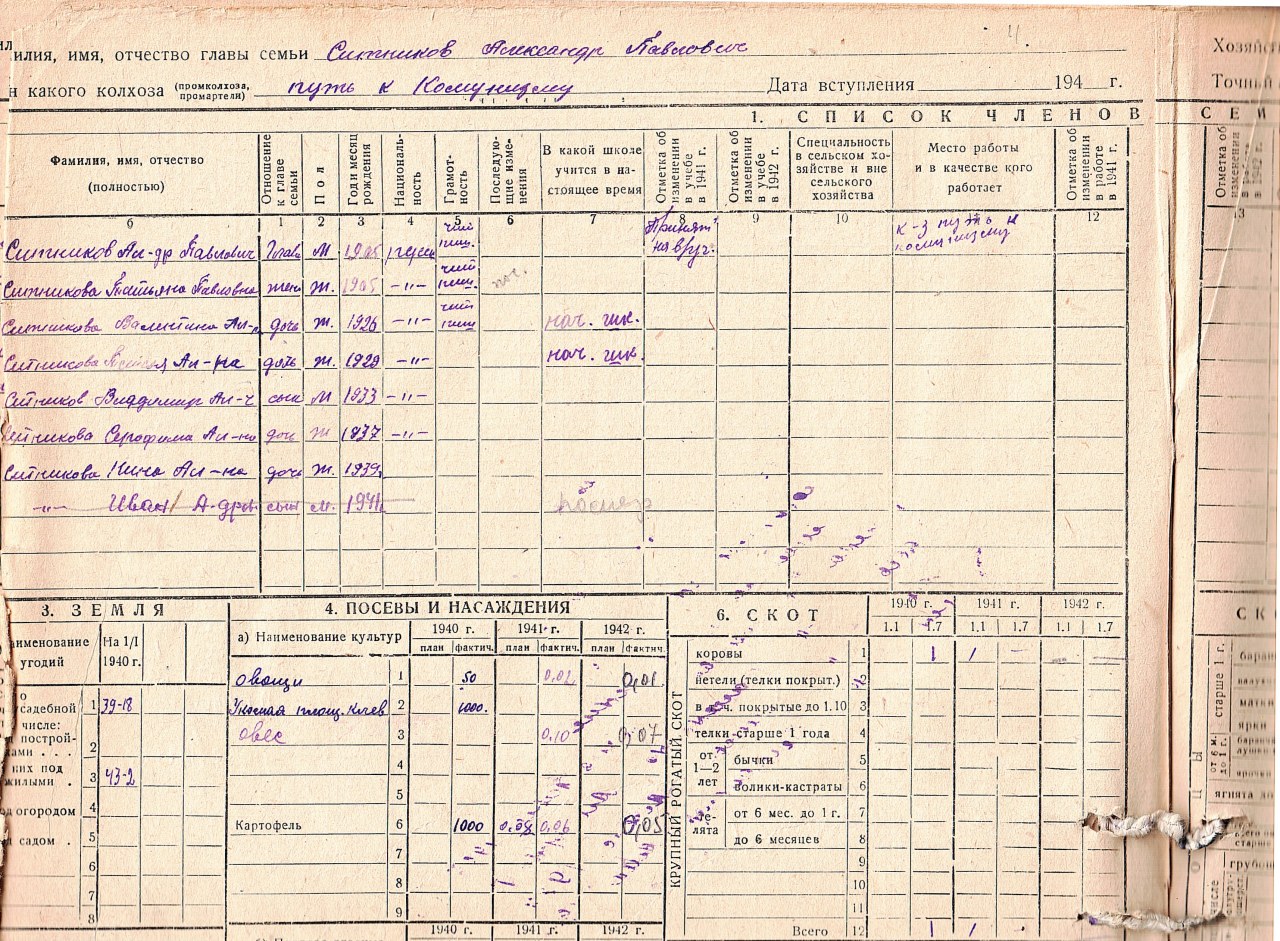 илия, имя, отчество главы семьи Ситников Александр Павлович
4.
Хозяйст
н какого колхоза (промколхоза, промартели) путь к Комунизму Дата вступления 194 г.
Точный
1. СПИСОК ЧЛЕНОВ СЕМ
Фамилия, имя, отчество (полностью)
Отношение к главе семьи
Пол
Год и месяц рождения
Националь-ность
Грамот-ность
Последую-щие изме-нения
В какой школе учится в на-стоящее время
Отметка об изменении в учебе в 1941 г.
Отметка об изменении в учебе в 1942 г.
Специальность в сельском хо-зяйстве и вне сельского хозяйства
Место работы и в качестве кого работает
Отметка об изменении в работе в 1941 г.
Отметка об изменении
б 1 2 3 4 5 6 7 8 9 10 11 12 13
Ситников Ал-др Павлович Глава М 1905 русск чит. пиш. Принят на вруч. к-з путь к комунизму
Ситникова Татьяна Павловна жена Ж. 1905 -"- чит пиш.
Ситникова Валентина Ал-на дочь Ж. 1926 -"- чит пиш нач. шк.
Ситникова Ал-на дочь Ж. 1929 -"- нач. шк.
Ситников Владимир Ал-ч сын М 1933 -"-
Ситникова Серафима Ал-на дочь Ж 1937 -"-
Ситникова Нина Ал-на дочь Ж. 1939
-"- Иван А-дров. сын м. 1941
3. ЗЕМЛЯ
именование угодий
На 1/I 1940 г.
садебной 1 39-18
числе:
построй-
ами . . . 2
них под
жилыми . 3 43-2
од огородом 4
садом . 5
6
7
8
4. ПОСЕВЫ И НАСАЖДЕНИЯ
а) Наименование культур 1940 г. 1941 г. 1942 г.
план фактич. план фактич. план фактич.
овощи 1 50 0,02 0,01
Укосная площ. клев 2 1000.
Овес 3 0,10 0,07
4
5
Картофель 6 1000 0.08 0,06 0,05
7
8
9
1940 г. 1941 г. 1942 г.
6. СКОТ
1940 г. 1941 г. 1942 г.
1.1 1.7 1.1 1.7 1.1 1.7
КРУПНЫЙ РОГАТЫЙ СКОТ
коровы 1 1 1 -
нетели (телки покрыт.) 2
в т. ч. покрытые до 1.10 3
телки старше 1 года 4
от 1—2 лет
бычки 5
волики-кастраты 6
те-лята
от 6 мес. до 1 г. 7
до 6 месяцев 8
9
10
11
Всего 12 1 1
СК
старше 1 г.
баран
матки
ярки
от 6 м. до 1 г.
ярочки
ягнята до
старше
грубош